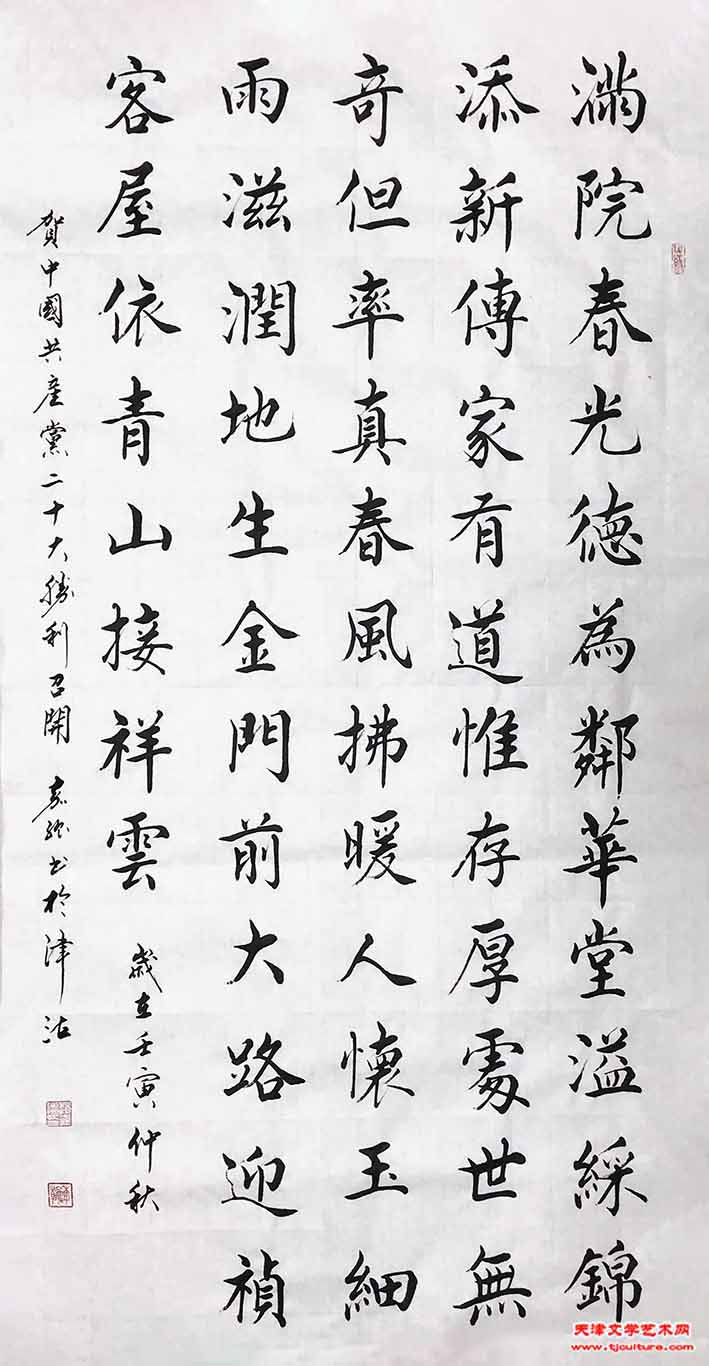 滿院春光德為鄰華堂溢綵錦
添新傳家有道惟存厚處世無
奇但率真春風拂暖人懷玉細
雨滋潤地生金門前大路迎禎
客屋依青山接祥雲
歲在壬寅仲秋
賀中國共產黨二十大勝利召開 書於津沽
天津文学艺术网
www.tjculture.com